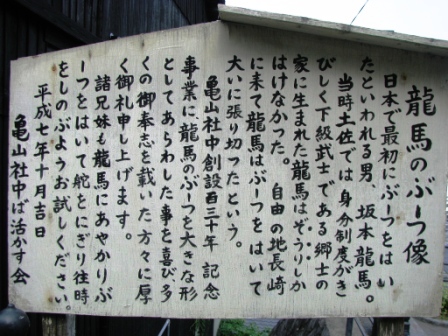 龍馬のぶーつ像
日本で最初にぶーつをはい
たといわれる男、坂本龍馬。
当時土佐では身分制度がき
びしく下級武士である郷士の
家に生まれた龍馬はぞうりしか
はけなかった。自由の地長崎
に来て龍馬はぶーつをはいて
大いに張り切ったという。
亀山社中創設百三十年記念
事業に、龍馬のぶーつを大きな形
としてあらわした事を喜び多
くの御奉志を戴いた方々に厚
く御礼申し上げます。
諸兄妹も龍馬にあやかりぶ
ーつをはいて舵をにぎり往時
をしのぶようお試しください。
平成七年十月吉日
亀山社中ば活かす会